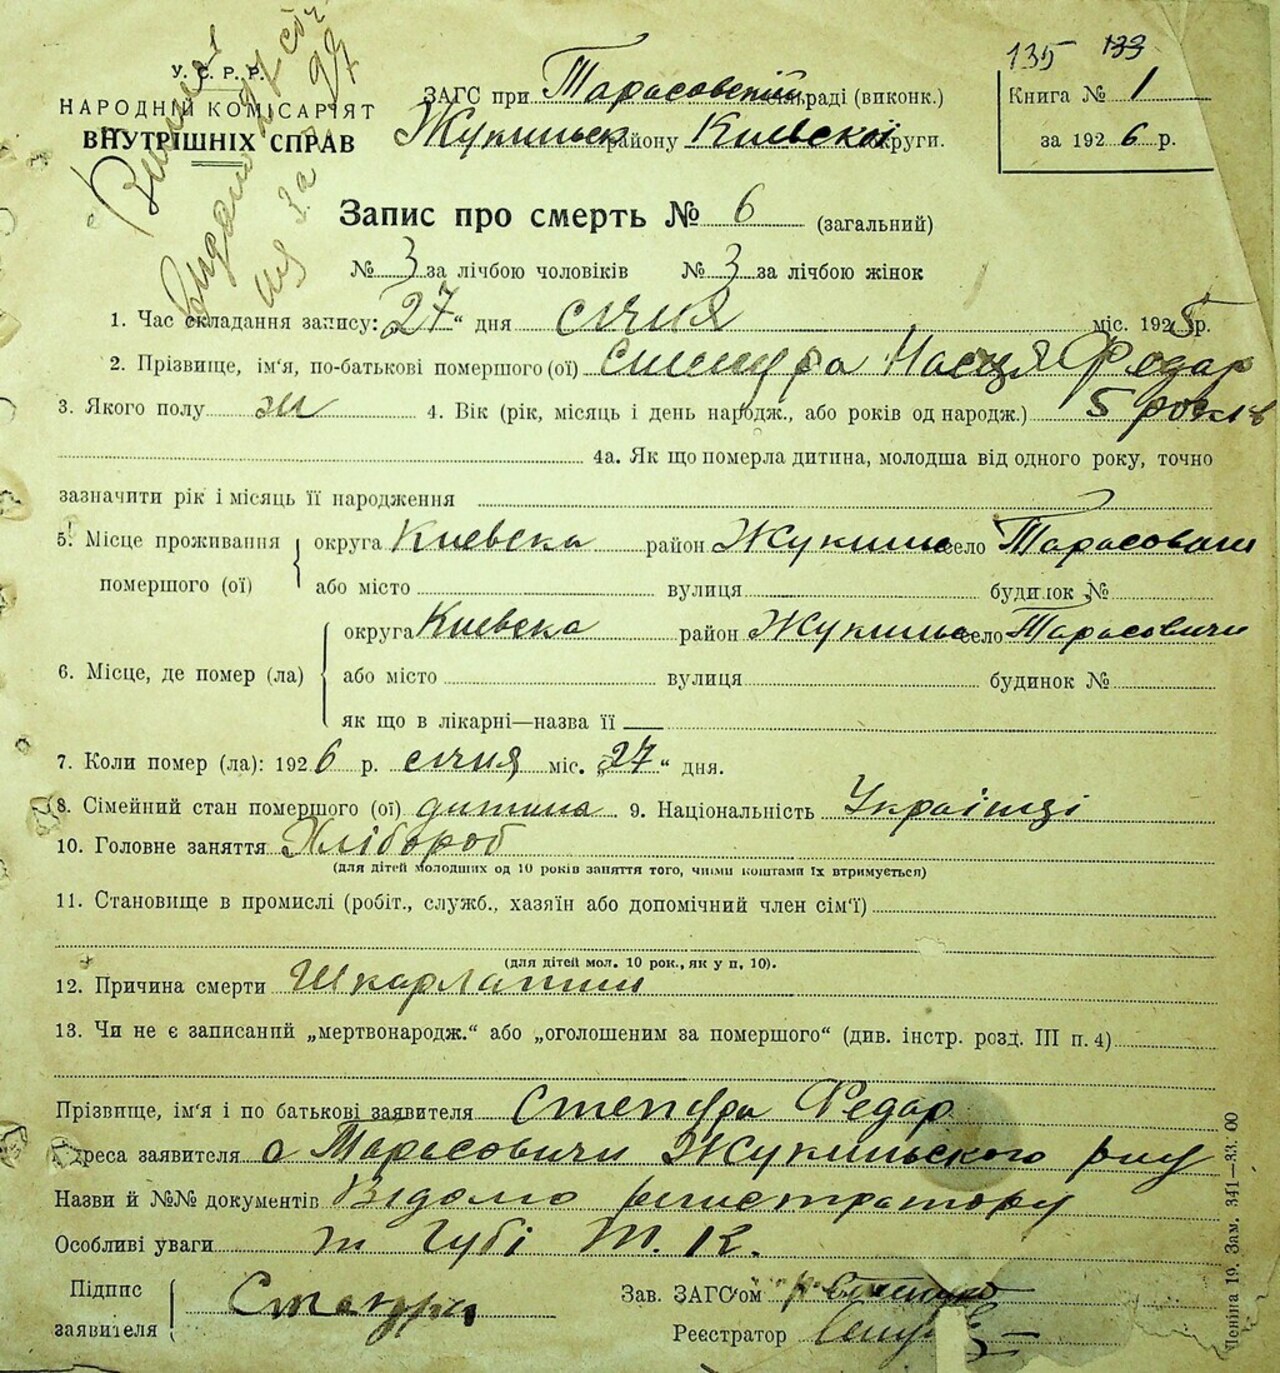 135 133
У. С. Р. Р.
НАРОДНІЙ КОМІСАРІЯТ
ВНУТРІШНІХ СПРАВ
ЗАГС при Тарасовский раді (виконк.)
Жукинськ району Киевскої округи.
Книга № 1
за 1926 р.
Запис про смерть № 6 (загальний)
№ 3 за лічбою чоловіків № 3 за лічбою жінок
1. Час складання запису: 27 “ дня січня міс. 1925 р.
2. Прізвище, ім'я, по-батькові помершого (ої) Настя Федар
3. Якого полу ж 4. Вік (рік, місяць і день народж., або років од народж.) 5 років
4а. Як що померла дитина, молодша від одного року, точно
зазначити рік і місяць її народження
5. Місце проживання помершого (ої) округа Киевска район Жукинь село Тарасовичи
або місто вулиця будинок №
6. Місце, де помер (ла) округа Киевска район Жукинь село Тарасовичи
або місто вулиця будинок №
як що в лікарні—назва її
7. Коли помер (ла): 1926 р. січня міс. „27“ дня.
8. Сімейний стан помершого (ої) дитина 9. Національність Українці
10. Головне заняття Хлібороб
(для дітей молодших од 10 років заняття того, чиїми коштами їх втримується)
11. Становище в промислі (робіт., служб., хазяїн або допомічний член сім'ї)
(для дітей мол. 10 рок., як у п. 10).
12. Причина смерти Шкарлатин
13. Чи не є записаний „мертвонародж.“ або „оголошеним за помершого“ (див. інстр. розд. III п. 4)
Прізвище, ім'я і по батькові заявителя Степура Федар
Адреса заявителя с Тарасовичи Жукинського р-ну
Назви й №№ документів Відомо регистратору
Особливі уваги Т. К.
Підпис заявителя Степура
Зав. ЗАГС'ом
Реєстратор
Леніна 19. Зам. 341—33. 00